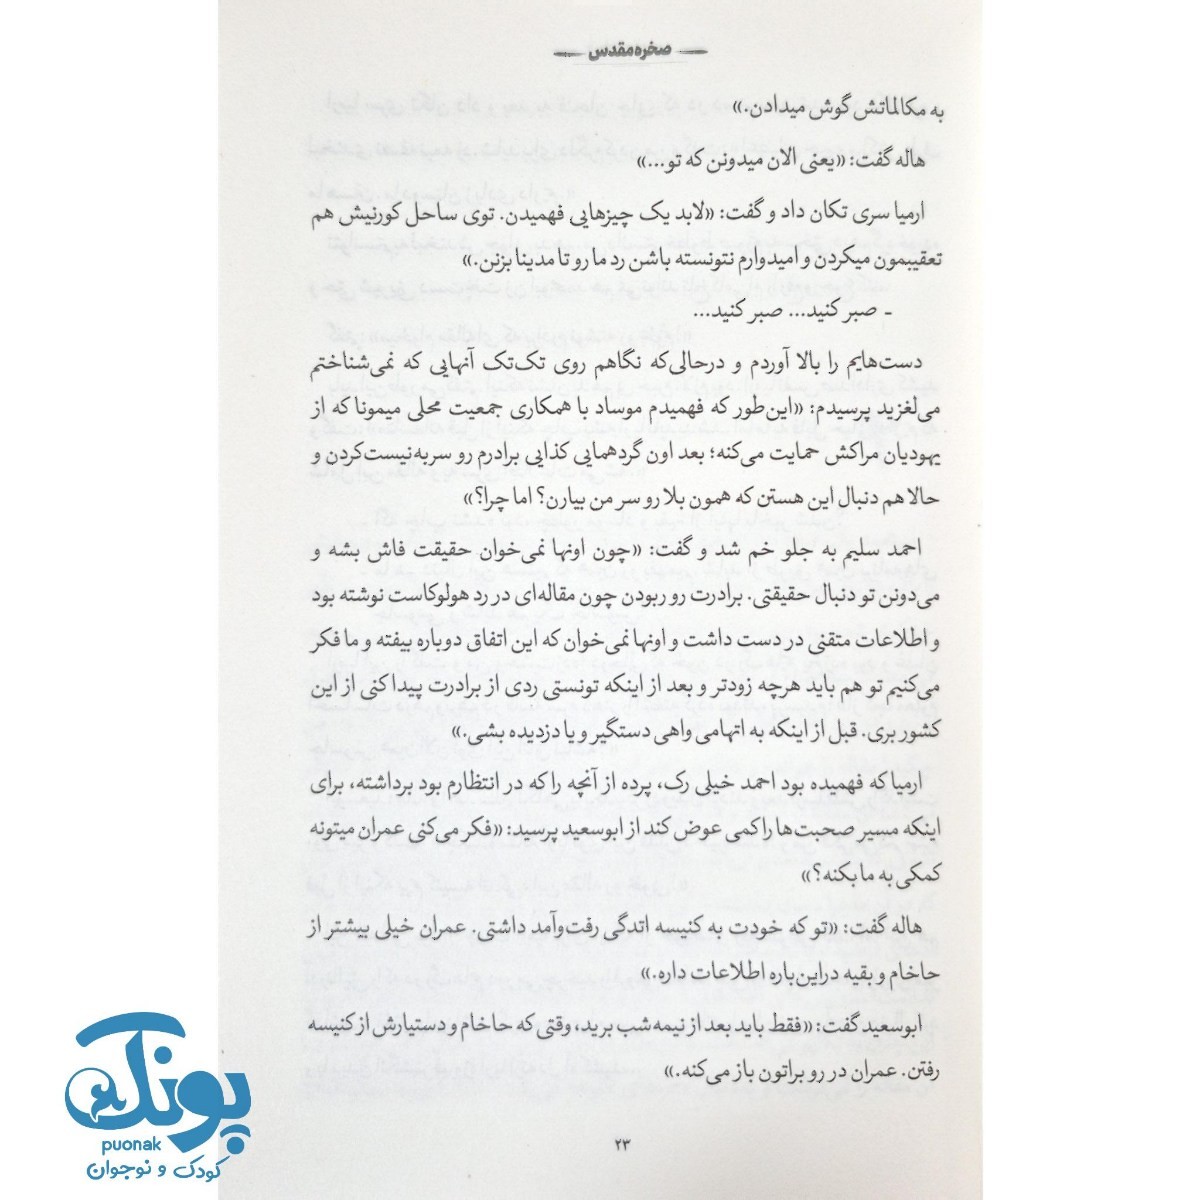 صخره مقدس
به مکالماتش گوش میدادن.»
هاله گفت: «یعنی الان میدونن که تو...»
ارمیا سری تکان داد و گفت: «لابد یک چیزهایی فهمیدن. توی ساحل کورنیش هم
تعقیبمون میکردن و امیدوارم نتونسته باشن رد ما رو تا مدینا بزنن.»
- صبر کنید... صبر کنید...
دست‌هایم را بالا آوردم و درحالی‌که نگاهم روی تک‌تک آنهایی که نمی‌شناختم
می‌لغزید پرسیدم: «این‌طور که فهمیدم موساد با همکاری جمعیت محلی میمونا که از
یهودیان مراکش حمایت می‌کنه؛ بعد اون گردهمایی کذایی برادرم رو سربه‌نیست‌کردن و
حالا هم دنبال این هستن که همون بلا رو سر من بیارن؟ اما چرا؟»
احمد سلیم به جلو خم شد و گفت: «چون اونها نمی‌خوان حقیقت فاش بشه و
می‌دونن تو دنبال حقیقتی. برادرت رو ربودن چون مقاله‌ای در رد هولوکاست نوشته بود
و اطلاعات متقنی در دست داشت و اونها نمی‌خوان که این اتفاق دوباره بیفته و ما فکر
می‌کنیم تو هم باید هرچه زودتر و بعد از اینکه تونستی ردی از برادرت پیدا کنی از این
کشور بری. قبل از اینکه به اتهامی واهی دستگیر و یا دزدیده بشی.»
ارمیا که فهمیده بود احمد خیلی رک، پرده از آنچه را که در انتظارم بود برداشته، برای
اینکه مسیر صحبت‌ها را کمی عوض کند از ابوسعید پرسید: «فکر می‌کنی عمران میتونه
کمکی به ما بکنه؟»
هاله گفت: «تو که خودت به کنیسه اتدگی رفت‌وآمد داشتی. عمران خیلی بیشتر از
حاخام و بقیه دراین‌باره اطلاعات داره.»
ابوسعید گفت: «فقط باید بعد از نیمه شب برید، وقتی که حاخام و دستیارش از کنیسه
رفتن. عمران در رو براتون باز می‌کنه.»
۲۳
پونک
puonak
کودک و نوجوان